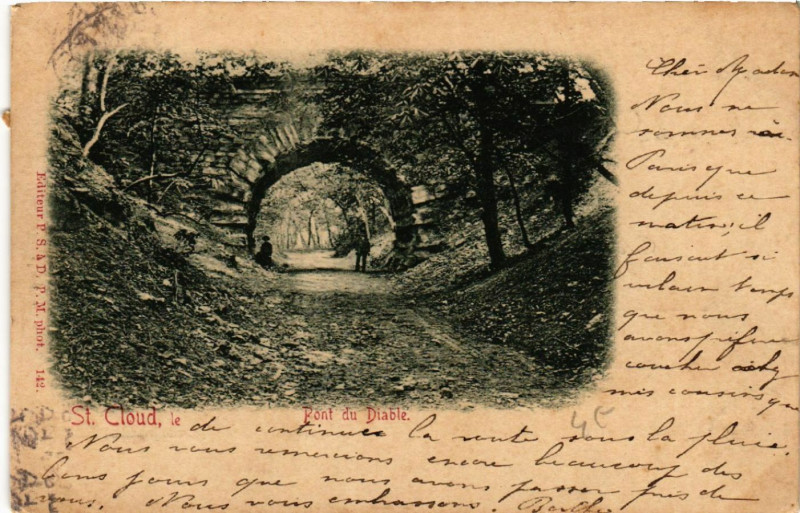 Cher Madam
Nous ne
sommes à
Paris que
depuis ce
matin; il
faisait si
vilain temps
que nous
avons préféré
coucher chez
mes cousins que
Editeur P. S. à D. P. M. phot. 142.
St. Cloud, le
Pont du Diable.
de continuer la route sous la pluie.
Nous vous remercions encore beaucoup des
bons jours que nous avons passés près de
vous. Nous vous embrassons. Berthe